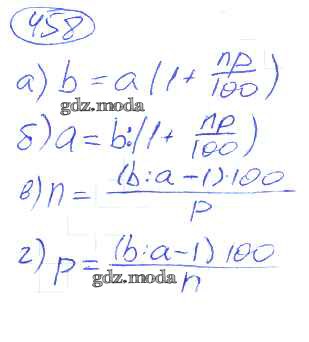 458
а) b = a (1 + np/100)
gdz.moda
б) a = b:(1 + np/100)
в) n = (b:a-1)·100/p
г) p = (b:a-1)100/n
gdz.moda